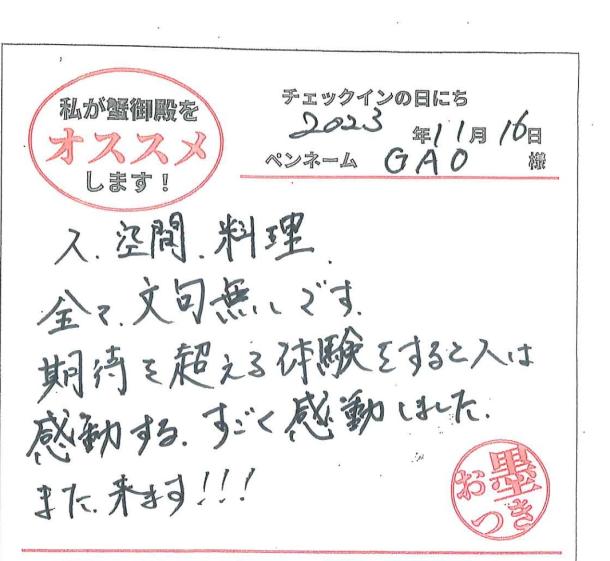 私が蟹御殿を
オススメ
します！
チェックインの日にち
2023年11月16日
ペンネーム GAO 様
人、空間、料理、
全て、文句無しです。
期待を超える体験をすると人は
感動する。すごく感動しました。
また、来ます!!!
お墨
つき